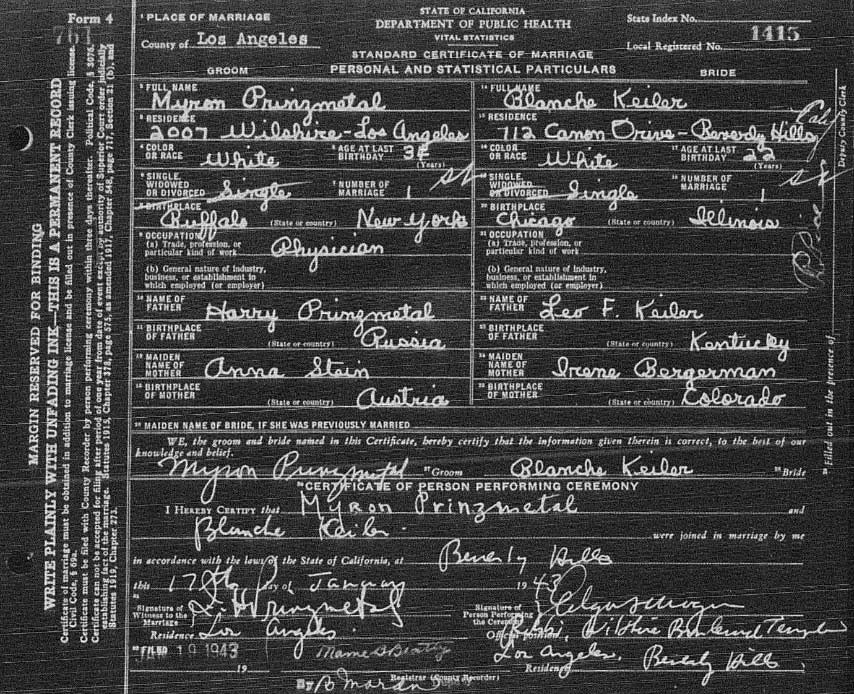 Form 4
1 PLACE OF MARRIAGE
County of Los Angeles
STATE OF CALIFORNIA
DEPARTMENT OF PUBLIC HEALTH
VITAL STATISTICS
STANDARD CERTIFICATE OF MARRIAGE
State Index No.
Local Registered No. 1415
GROOM PERSONAL AND STATISTICAL PARTICULARS BRIDE
FULL NAME Myron Prinzmetal FULL NAME Blanche Keiler
RESIDENCE 2007 Wilshire-Los Angeles RESIDENCE 712 Canon Drive-Beverly Hills
COLOR OR RACE White AGE AT LAST BIRTHDAY (Years) COLOR OR RACE White AGE AT LAST BIRTHDAY 22 (Years)
SINGLE, WIDOWED OR DIVORCED Single NUMBER OF MARRIAGE 1 SINGLE, WIDOWED OR DIVORCED Single NUMBER OF MARRIAGE 1
BIRTHPLACE Buffalo (State or country) New York BIRTHPLACE Chicago (State or country) Illinois
OCCUPATION
(a) Trade, profession, or particular kind of work Physician
(b) General nature of industry, business, or establishment in which employed (or employer)
OCCUPATION
(a) Trade, profession, or particular kind of work
(b) General nature of industry, business, or establishment in which employed (or employer)
NAME OF FATHER Harry Prinzmetal NAME OF FATHER Leo F. Keiler
BIRTHPLACE OF FATHER (State or country) Russia BIRTHPLACE OF FATHER (State or country) Kentucky
MAIDEN NAME OF MOTHER Anna Stein MAIDEN NAME OF MOTHER Irene Bergerman
BIRTHPLACE OF MOTHER (State or country) Austria BIRTHPLACE OF MOTHER (State or country) Colorado
MAIDEN NAME OF BRIDE, IF SHE WAS PREVIOUSLY MARRIED
WE, the groom and bride named in this Certificate, hereby certify that the information given therein is correct, to the best of our
knowledge and belief.
Myron Prinzmetal Groom Blanche Keiler Bride
CERTIFICATE OF PERSON PERFORMING CEREMONY
I HEREBY CERTIFY that Myron Prinzmetal and
Blanche Keiler were joined in marriage by me
in accordance with the laws of the State of California, at Beverly Hills
this 17th day of January 1943
Signature of Witness to the Marriage
Residence Los Angeles
Signature of Person Performing the Ceremony
Official Rabbi, Wilshire Boulevard Temple
Los Angeles. Residence Beverly Hills
FILED JAN 19 1943 Mame B Beatty
19 Registrar (County Recorder)
By
MARGIN RESERVED FOR BINDING
WRITE PLAINLY WITH UNFADING INK—THIS IS A PERMANENT RECORD
Certificate of marriage must be obtained in addition to marriage license and be filled out in presence of County Clerk issuing license.
Civil Code, § 69a.
Certificate must be filed with County Recorder by person performing ceremony within three days thereafter. Political Code, § 3076.
Certificate can not be accepted for filing after period of one year from date of event except by authority of Superior Court order judicially
establishing fact of the marriage. Statutes 1915, Chapter 378, page 575, as amended 1917, Chapter 548, page 717, Section 21 (b), and
Statutes 1919, Chapter 273.
Filled out in the presence of
Deputy County Clerk